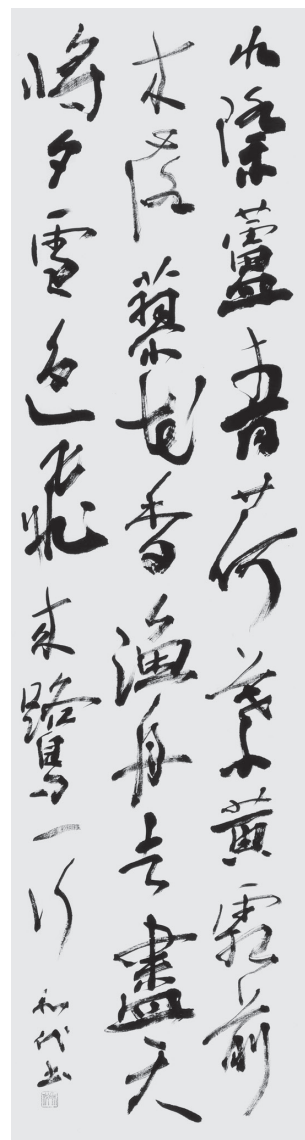 水際蘆青荷葉黃霜前
木落蓼花香漁舟去盡天
將夕雪色飛來鷺一行
和代書